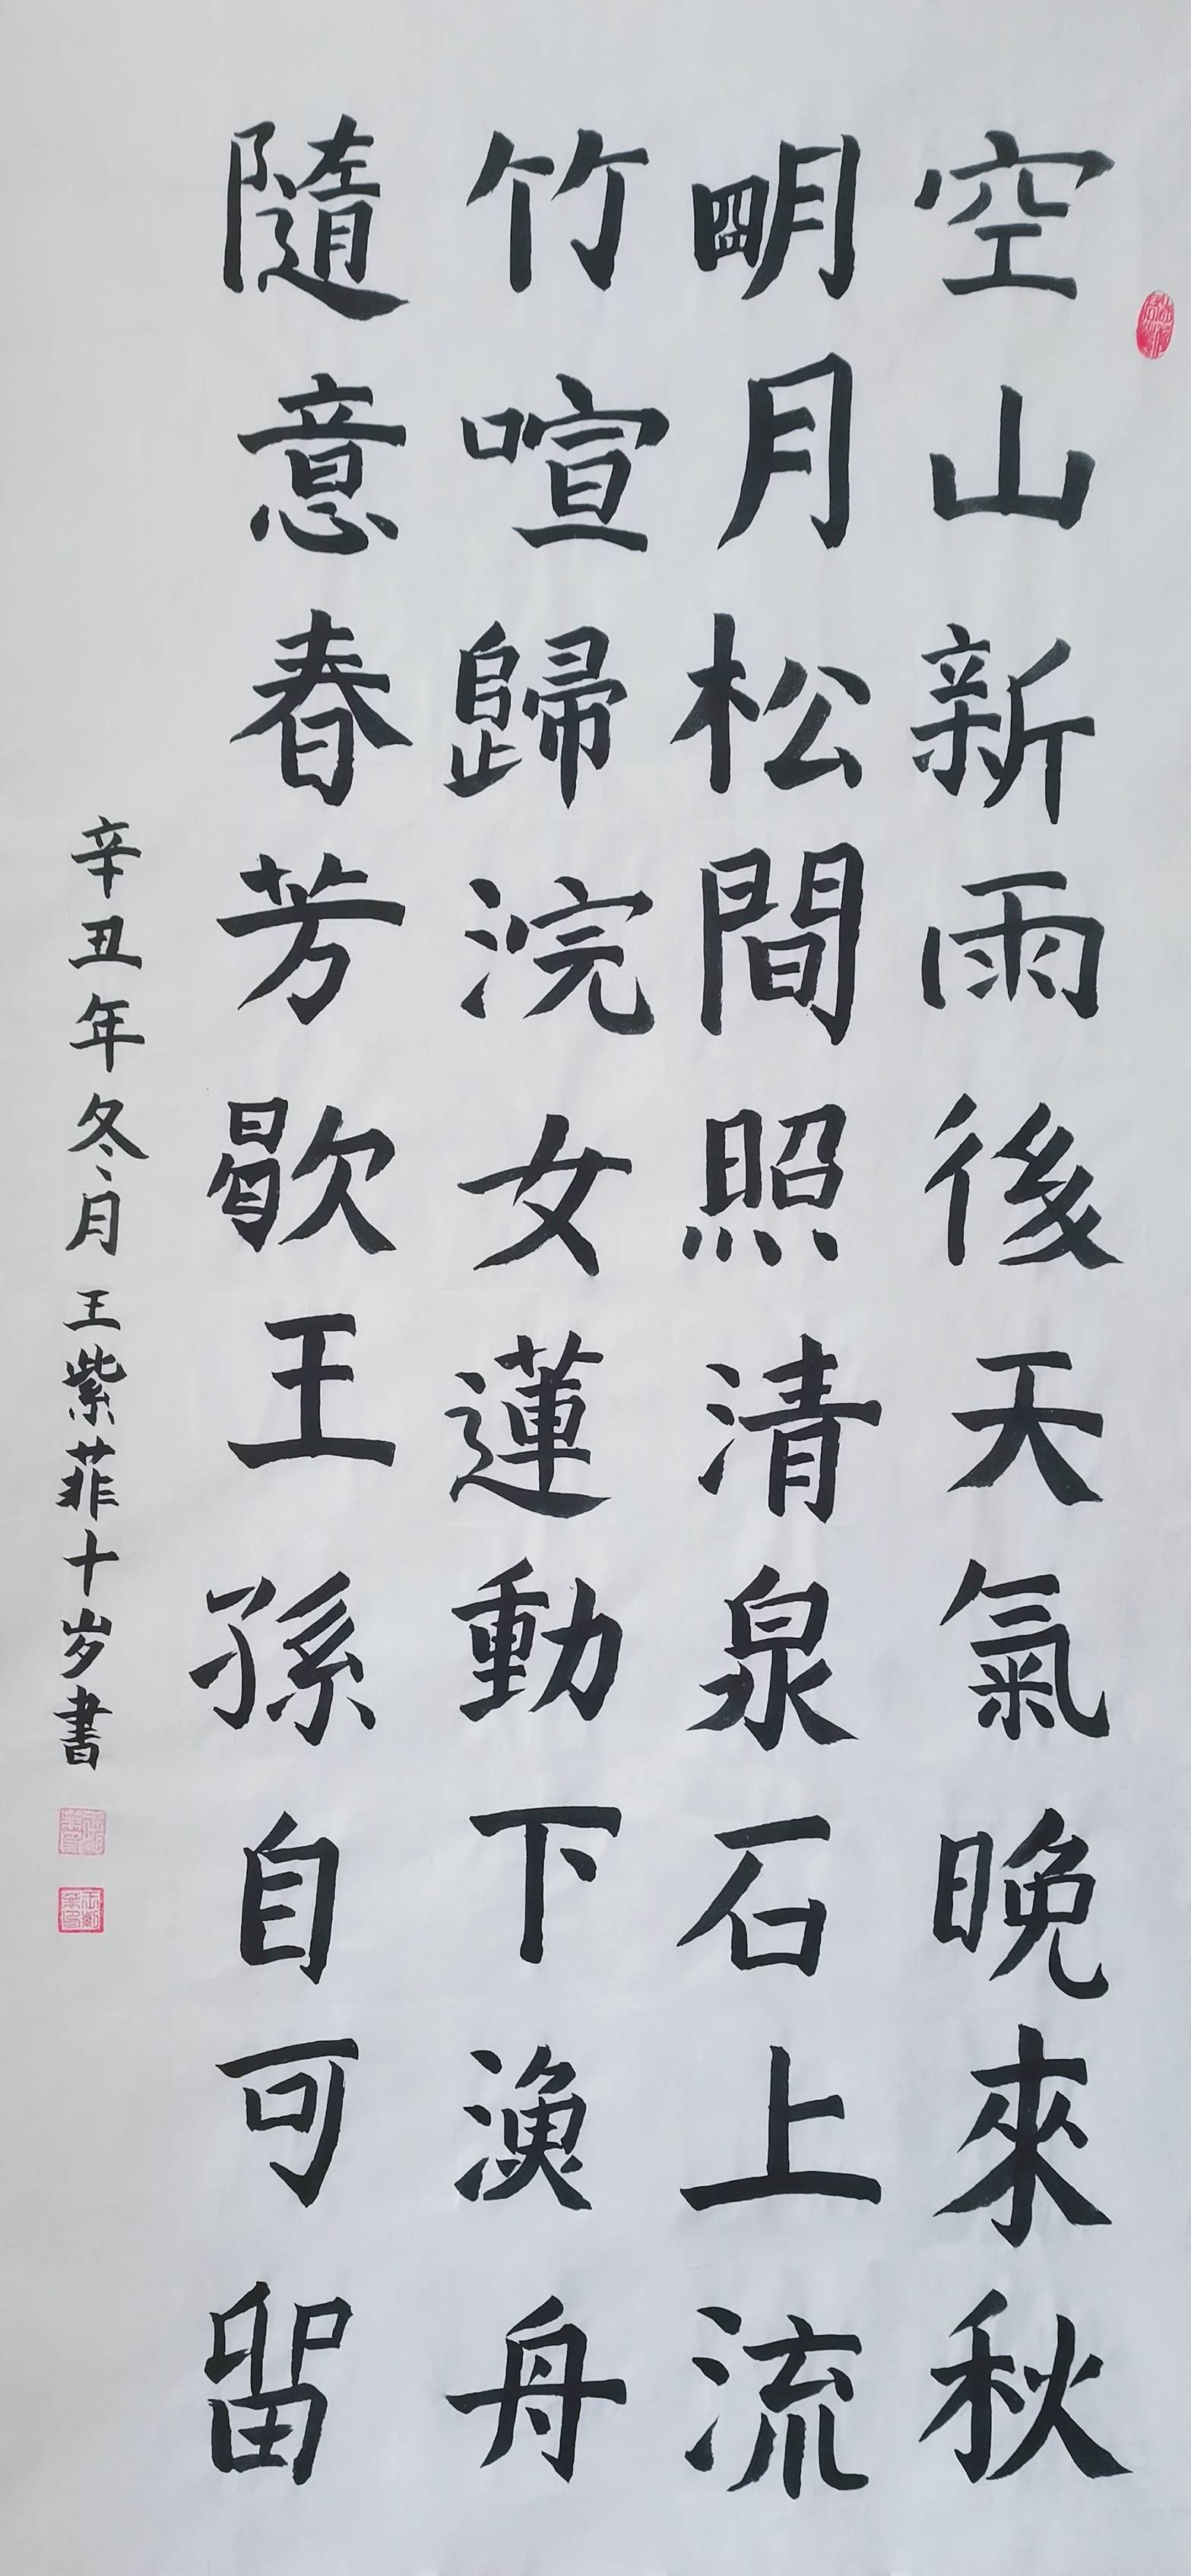 空山新雨後天氣晚來秋
明月松間照清泉石上流
竹喧歸浣女蓮動下漁舟
隨意春芳歇王孫自可留
辛丑年冬月王紫菲十岁書